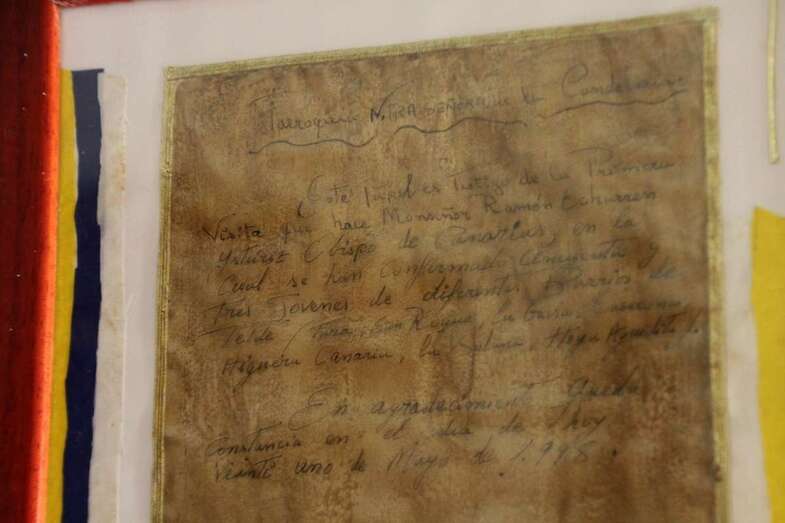 Parroquia NTRA SEÑORA de la Candelaria
Este Papel es Testigo de la Primera
Visita que hace Monseñor Ramón Echarren
Ysturiz Obispo de Canarias, en la
Cual se han Confirmado Cincuenta y
Tres Jovenes de diferentes Barrios de
Telde San Roque, la
Higuera Canaria, la Hoya
En agradecimiento queda
Constancia en el dia de Hoy
Veinte uno de Mayo de 1.998.